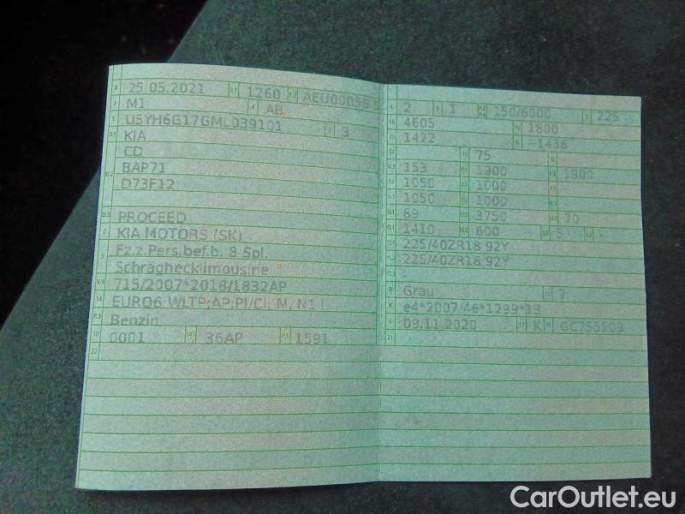 25.05.2021 1260 AEU00056
M1 AB
U5YH6G17GML039101 3
KIA
CD
BAP71
D73F12
PROCEED
KIA MOTORS (SK)
Fz.z.Pers.bef.b. 8 Spl.
Schräghecklimousine
715/2007*2018/1832AP
EURO6 WLTP;AP;PI/CI; M, N1 I
Benzin
0001 36AP 1591
2 1 150/6000 225
4605 1800
1422 -1436
75
153 1300 1800
1050 1000
1050 1000
89 3750 70
1410 600 5 -
225/40ZR18 92Y
225/40ZR18 92Y
-
Grau 7
e4*2007/46*1299*13
09.11.2020 K
CarOutlet.eu